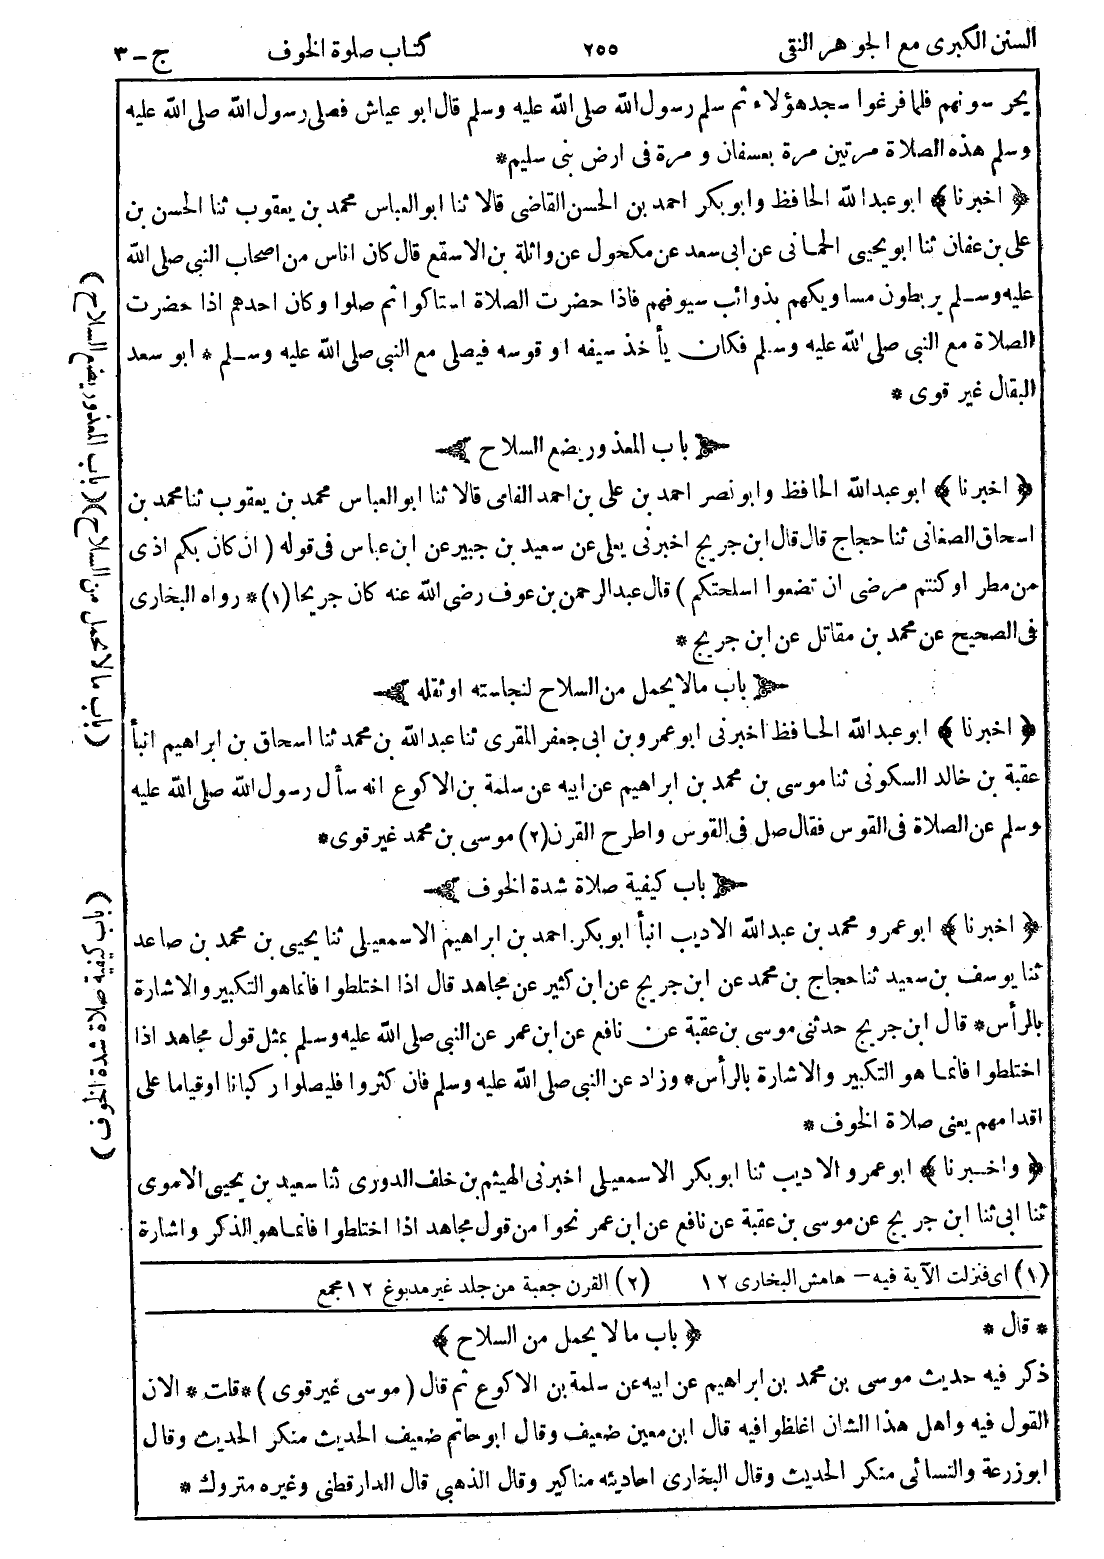 السنن الكبرى مع الجوهر النقى ٢٥٥ كتاب صلوة الخوف ج ـ ٣
يحرسونهم فلما فرغوا سجد هؤلاء ثم سلم رسول الله صلى الله عليه وسلم قال ابو عياش فصلى رسول الله صلى الله عليه
وسلم هذه الصلاة مرتين مرة بعسفان و مرة فى ارض بنى سليم *
﴿ اخبرنا ﴾ ابو عبدالله الحافظ وابو بكر احمد بن الحسن القاضى قالا ثنا ابو العباس محمد بن يعقوب ثنا الحسن بن
على بن عفان ثنا ابو يحيى الحمانى عن ابى سعد عن مكحول عن واثلة بن الاسقع قال كان اناس من اصحاب النبى صلى الله
عليه وسلم يربطون مساويكهم بذوائب سيوفهم فاذا حضرت الصلاة استاكوا ثم صلوا وكان احدهم اذا حضرت
الصلاة مع النبى صلى الله عليه وسلم فكان يأخذ سيفه او قوسه فيصلى مع النبى صلى الله عليه وسلم * ابو سعد
البقال غير قوى *
باب المعذور يضع السلاح
﴿ اخبرنا ﴾ ابو عبدالله الحافظ وابو نصر احمد بن على بن احمد الفامى قالا ثنا ابو العباس محمد بن يعقوب ثنا محمد بن
اسحاق الصغانى ثنا حجاج قال قال ابن جريج اخبرنى يعلى عن سعيد بن جبير عن ابن عباس فى قوله ( ان كان بكم اذى
من مطر او كنتم مرضى ان تضعوا اسلحتكم ) قال عبدالرحمن بن عوف رضى الله عنه كان جريحا (١) * رواه البخارى
فى الصحيح عن محمد بن مقاتل عن ابن جريج *
باب مالا يحمل من السلاح لنجاسته او ثقله
﴿ اخبرنا ﴾ ابو عبدالله الحافظ اخبرنى ابو عمرو بن ابى جعفر المقرى ثنا عبدالله بن محمد ثنا اسحاق بن ابراهيم انبأ
عقبة بن خالد السكونى ثنا موسى بن محمد بن ابراهيم عن ابيه عن سلمة بن الاكوع انه سأل رسول الله صلى الله عليه
وسلم عن الصلاة فى القوس فقال صل فى القوس واطرح القرن (٢) موسى بن محمد غير قوى *
باب كيفية صلاة شدة الخوف
﴿ اخبرنا ﴾ ابو عمرو محمد بن عبدالله الاديب انبأ ابو بكر احمد بن ابراهيم الاسمعيلى ثنا يحيى بن محمد بن صاعد
ثنا يوسف بن سعيد ثنا حجاج بن محمد عن ابن جريج عن ابن كثير عن مجاهد قال اذا اختلطوا فانما هو التكبير والاشارة
بالرأس * قال ابن جريج حدثنى موسى بن عقبة عن نافع عن ابن عمر عن النبى صلى الله عليه وسلم بمثل قول مجاهد اذا
اختلطوا فانما هو التكبير والاشارة بالرأس * وزاد عن النبى صلى الله عليه وسلم فان كثروا فليصلوا ركبانا او قياما على
اقدامهم يعنى صلاة الخوف *
﴿ واخبرنا ﴾ ابو عمرو الاديب ثنا ابو بكر الاسمعيلى اخبرنى الهيثم بن خلف الدورى ثنا سعيد بن يحيى الاموى
ثنا ابى ثنا ابن جريج عن موسى بن عقبة عن نافع عن ابن عمر نحوا من قول مجاهد اذا اختلطوا فانما هو الذكر واشارة
(١) اى فنزلت الآية فيه – هامش البخارى ١٢ (٢) القرن جعبة من جلد غير مدبوغ ١٢ مجمع
* قال * ﴿ باب مالا يحمل من السلاح ﴾
ذكر فيه حديث موسى بن محمد بن ابراهيم عن ابيه عن سلمة بن الاكوع ثم قال ( موسى غير قوى ) * قلت * الان
القول فيه واهل هذا الشان اغلظوا فيه قال ابن معين ضعيف وقال ابو حاتم ضعيف الحديث منكر الحديث وقال
ابو زرعة والنسائى منكر الحديث وقال البخارى احاديثه مناكير وقال الذهبى قال الدارقطنى وغيره متروك *
(باب المعذور يضع السلاح)
(باب مالا يحمل من السلاح)
(باب كيفية صلاة شدة الخوف)